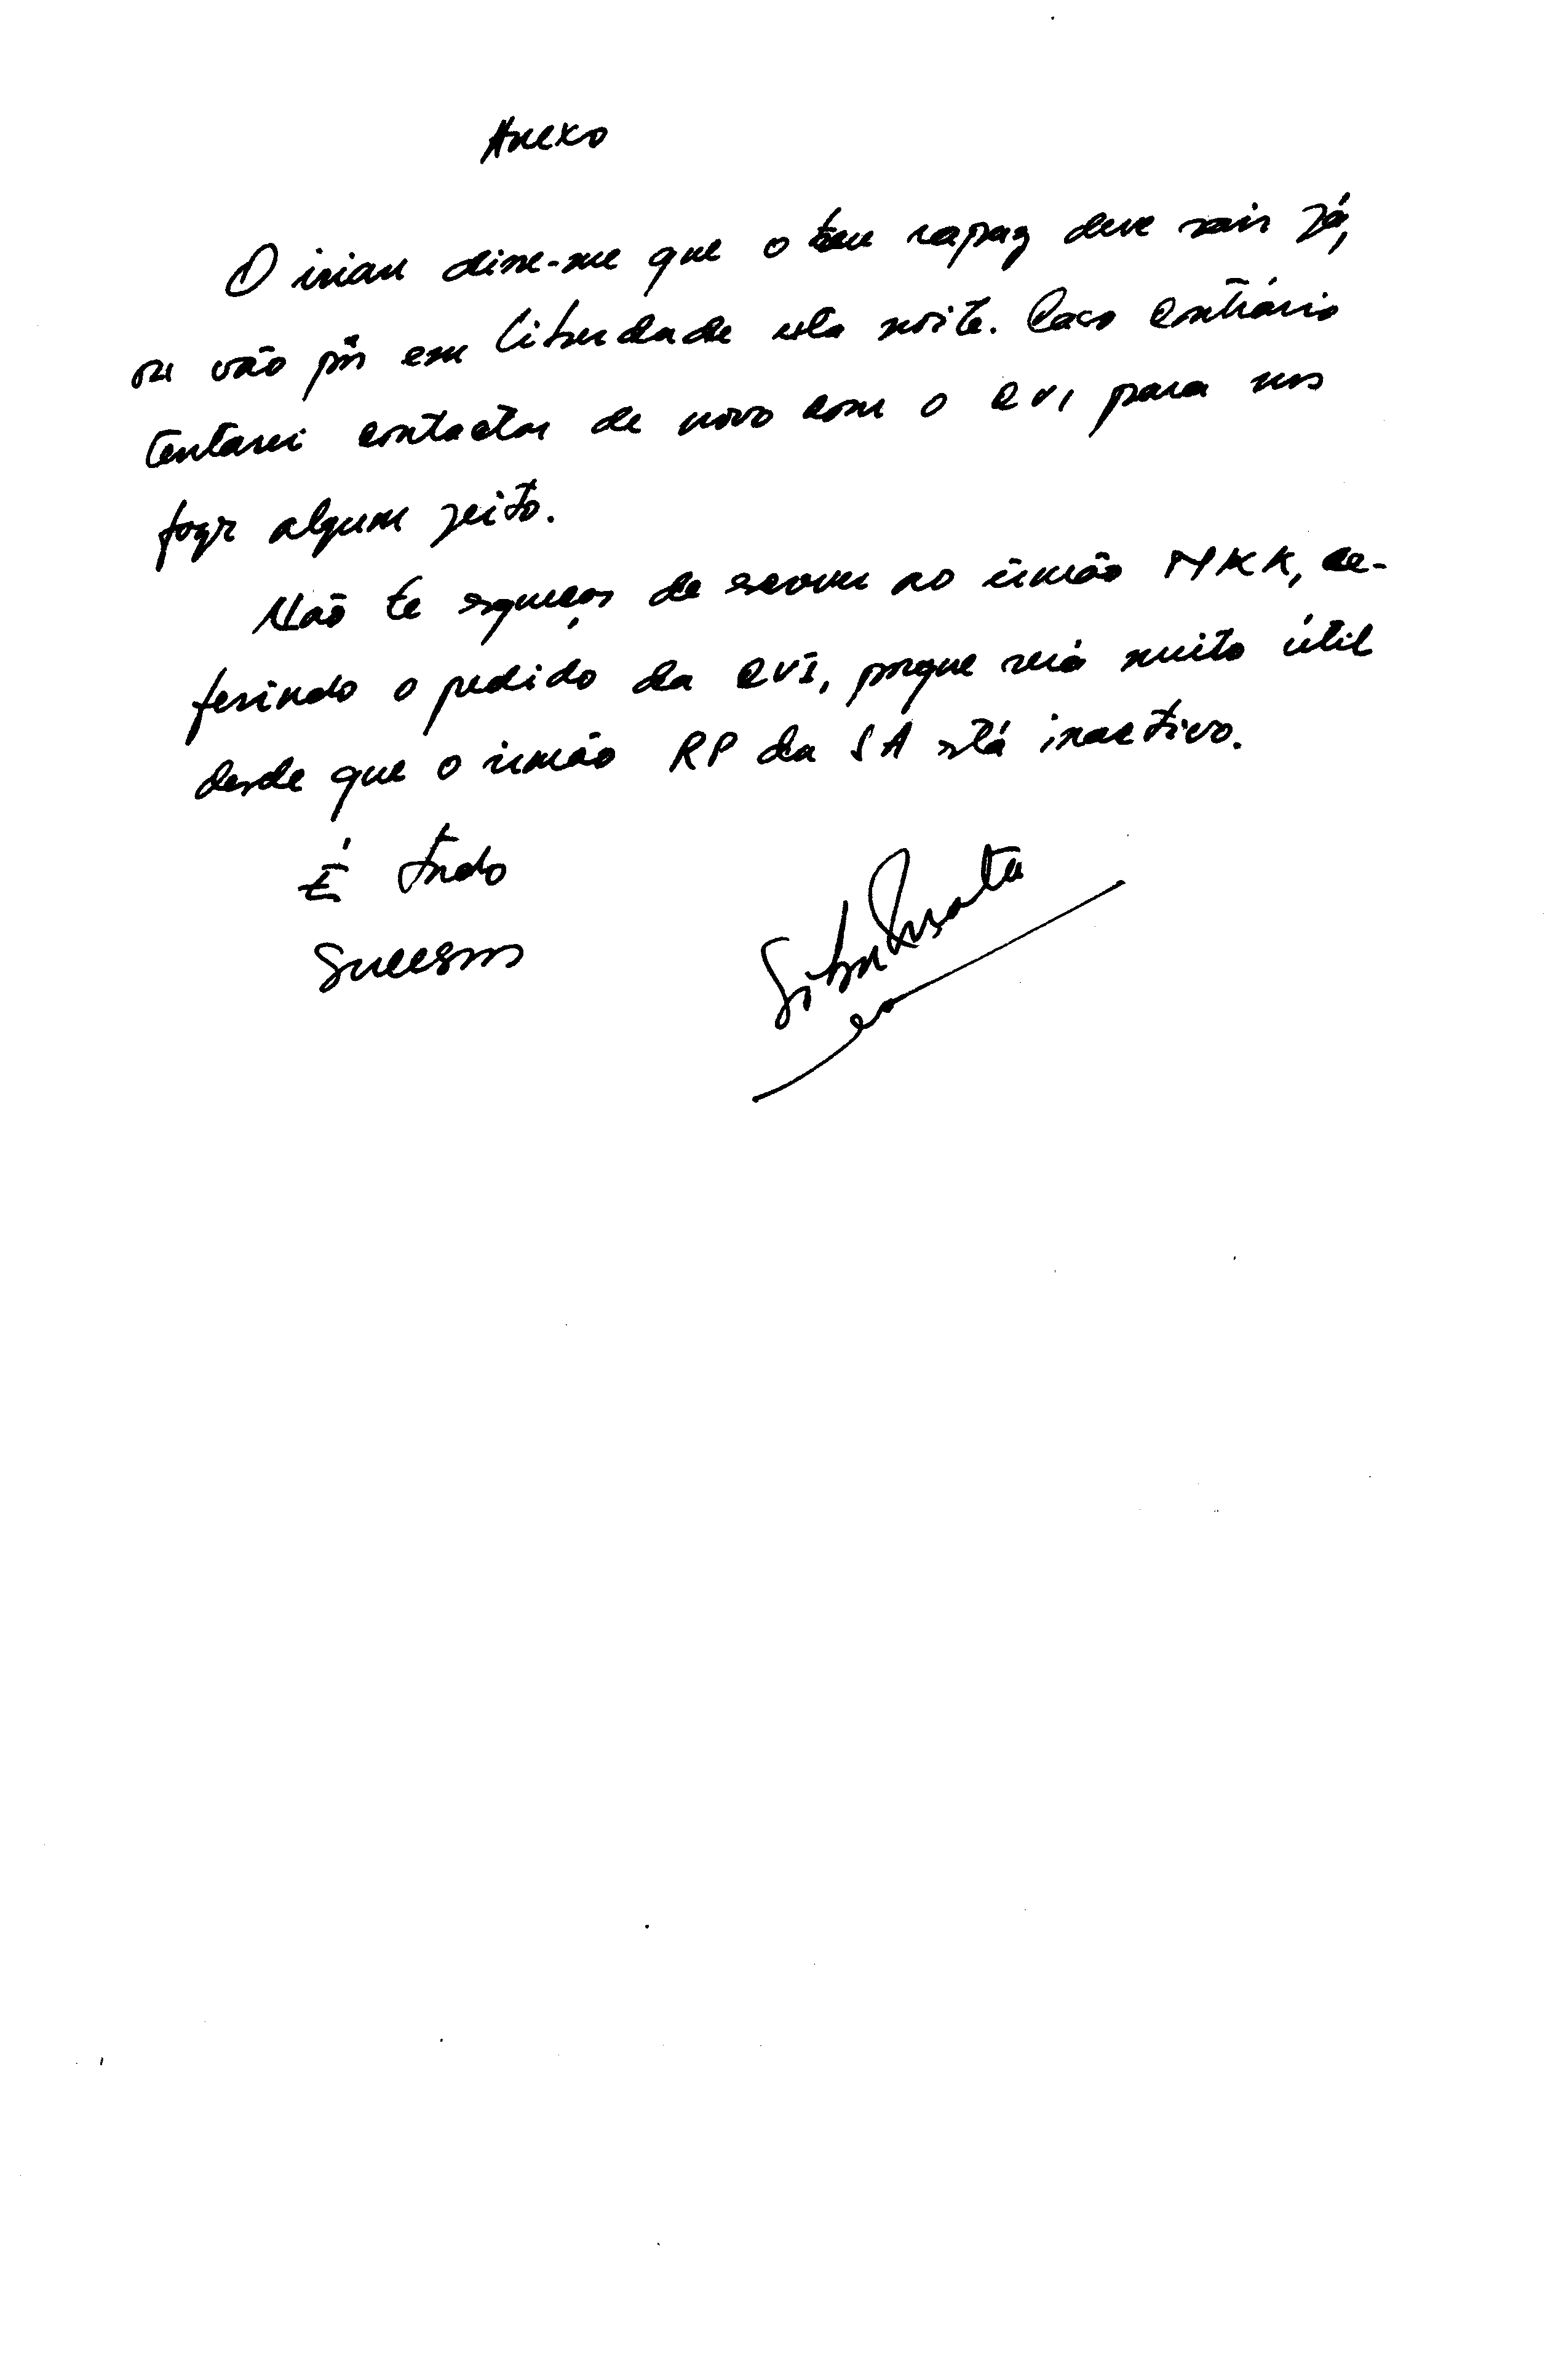 Anexo
O irian disse-me que o teu rapaz deve sair já,
ou vão pôr em liberdade esta noite. Caso contrário
tentarei contactar de novo com o QVI para nos
fazer algum jeito.
Não te esqueças de escrever ao irmão MKK, re-
ferindo o pedido da QVI, porque será muito útil
desde que o irmão RP da SA está inactivo.
É tudo
Sucessos